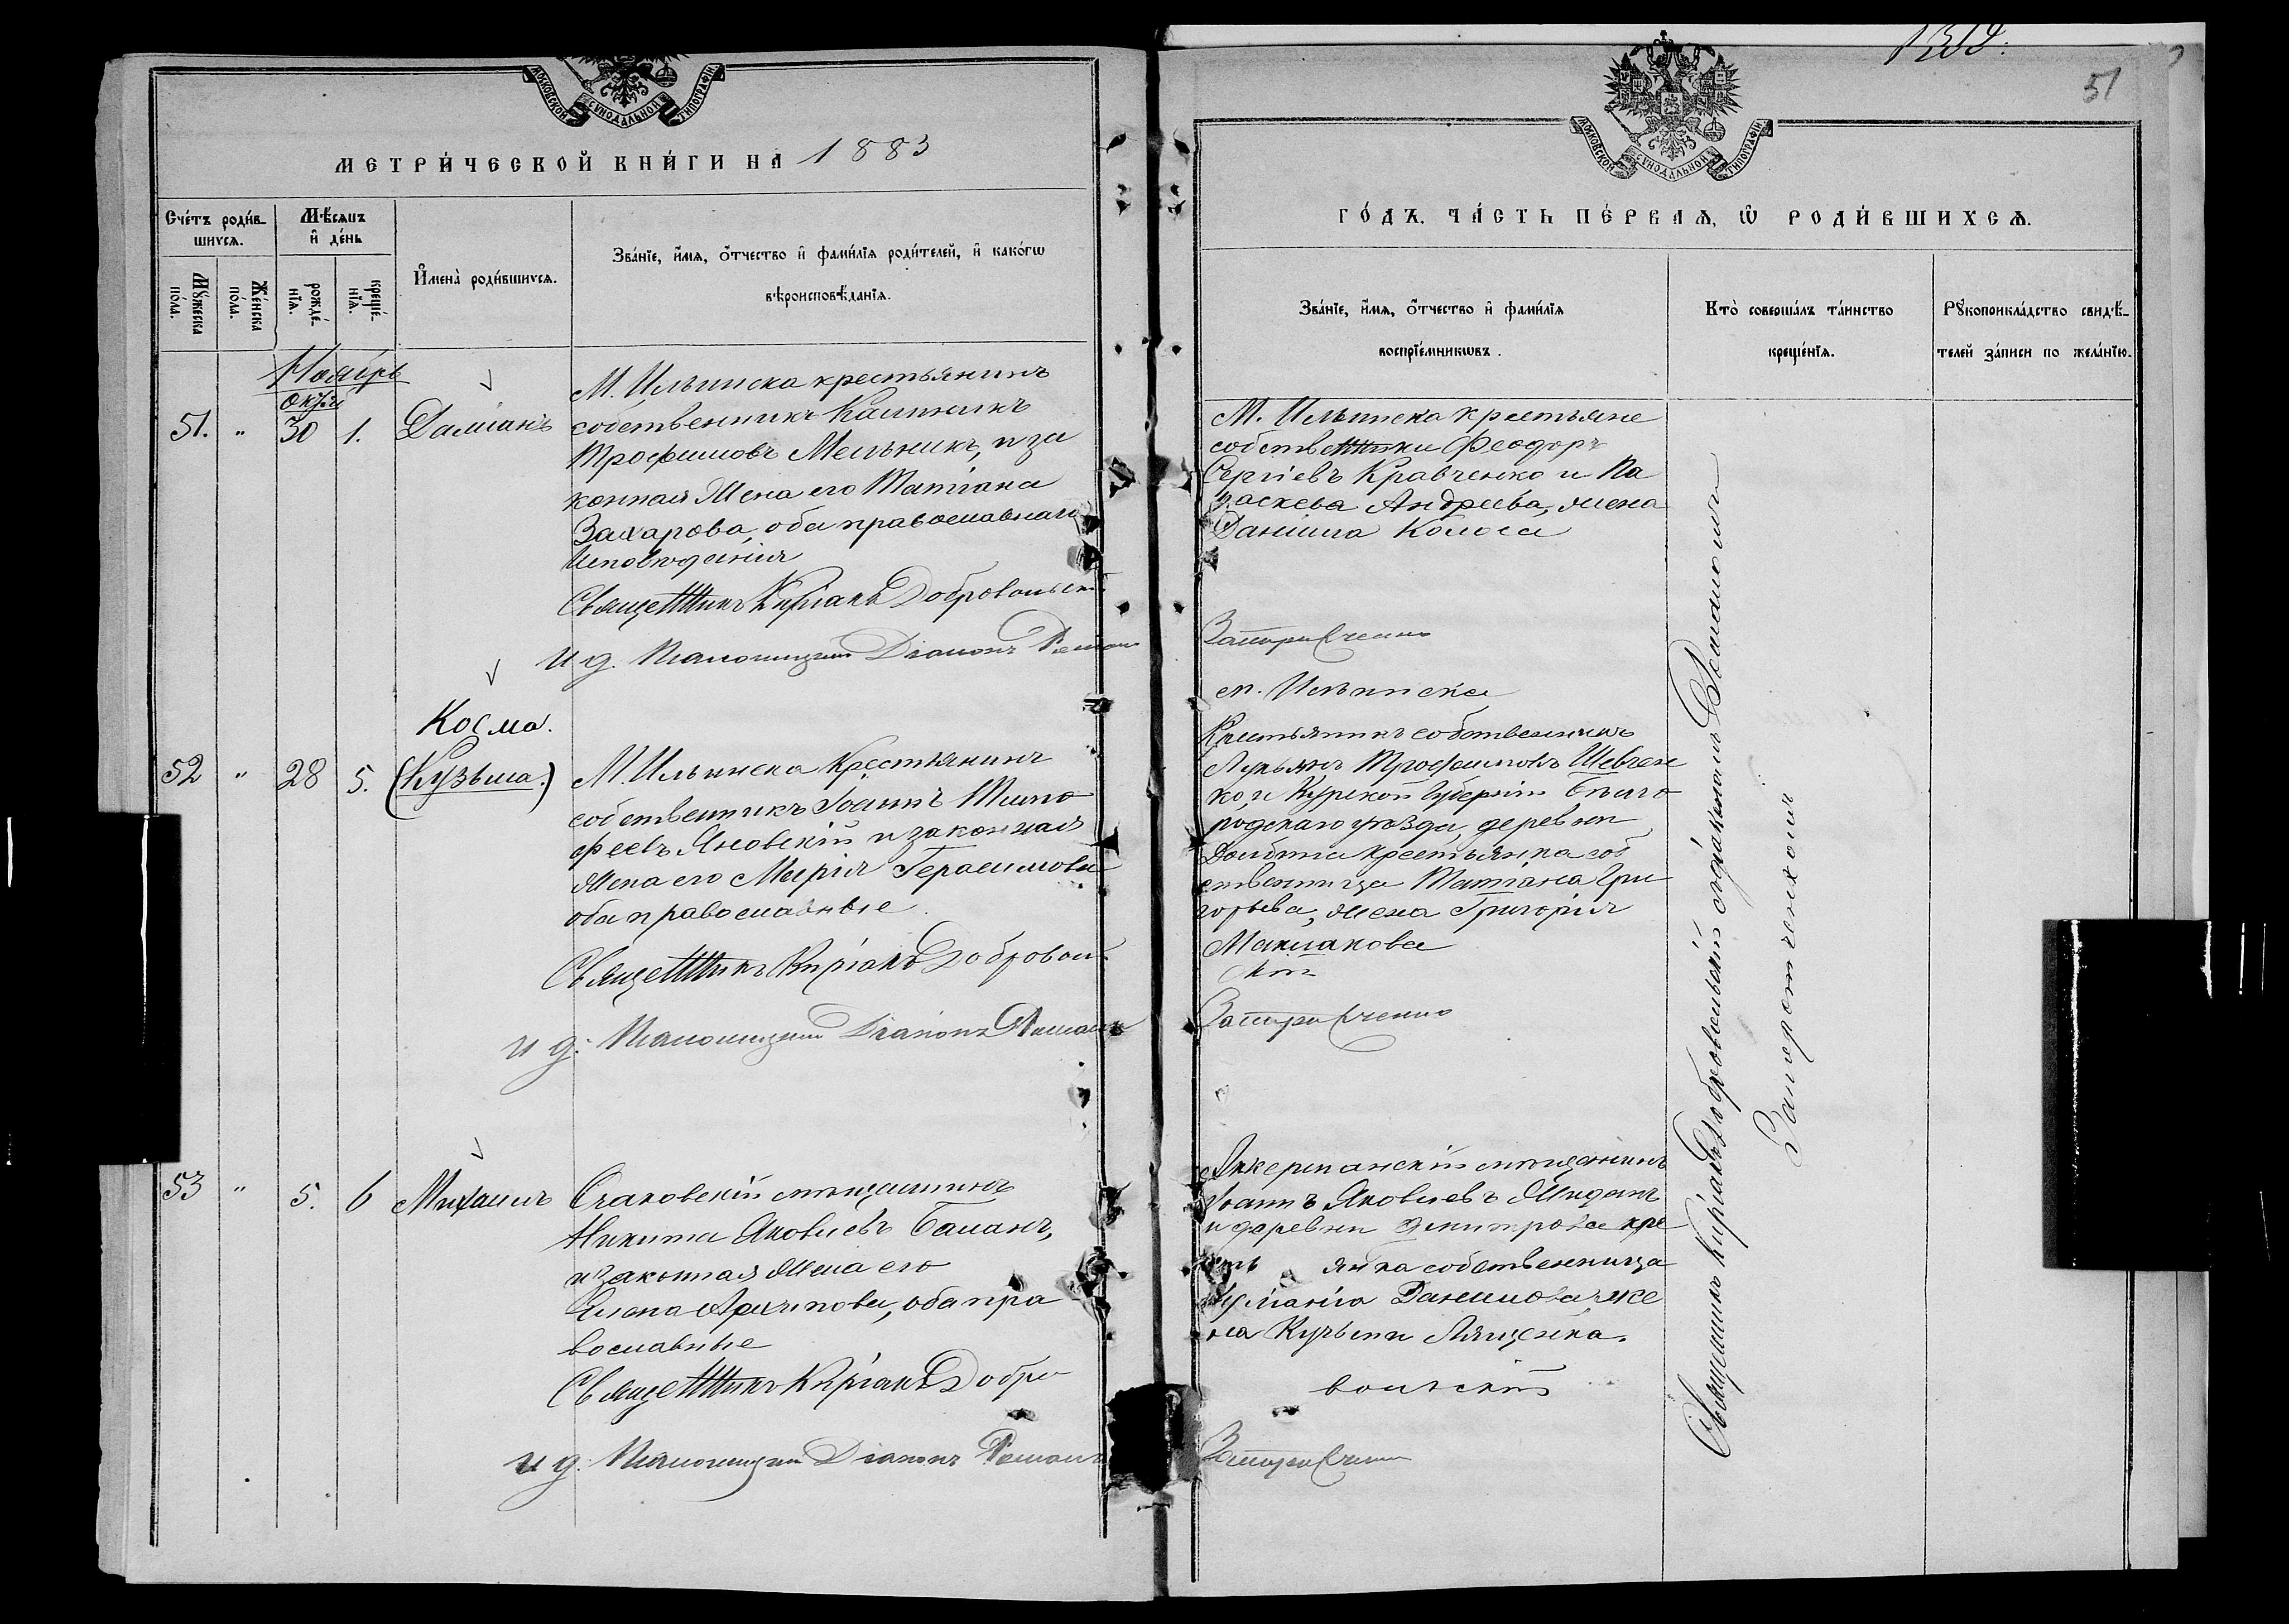 МОСКОВСКОЙ СѴНОДАЛЬНОЙ ТИПОГРАФІИ
МЕТРИ́ЧЕСКОЙ КНИ́ГИ НА 1883
Сче́тъ роди́в-
шихся.
Мѣ́сяцъ
и҆ де́нь
Мꙋ́жеска
по́ла.
Же́нска
по́ла.
рожде́-
нїѧ.
креще́-
нїѧ.
И҆мена̀ роди́вшихсѧ.
Зва́нїе, и҆́мѧ, ѻ҆́тчество и҆ фами́лїѧ роди́телей, и҆ како́гѡ
вѣроисповѣ́данїѧ.
Ноябрь
Октя
51. " 30 1. Даміанъ
М. Ильинска крестьянинъ
собственникъ Калиникъ
Трофимовъ Мельникъ, и за
конная жена его Татіана
Захарова, оба православнаго
исповѣданія
Священникъ Киріакъ Добровольск
И д. Псаломщика Діаконъ Роман
52 " 28 5. Косма.
(Кузьма.)
М. Ильинска Крестьянинъ
собственникъ Іоаннъ Тимо
феевъ Яновскій и законная
жена его Марія Герасимова
оба православные
Священникъ Киріакъ Добровол
И д. Псаломщика Діаконъ Роман
53 " 5. 6 Михаилъ
Очаковскій мѣщанинъ
Никита Яковлевъ Баланъ,
и законная жена его
Елена Архипова, оба пра
вославные
Священникъ Киріакъ Добро
И д. Псаломщика Діаконъ Романъ
51
МОСКОВСКОЙ СѴНОДАЛЬНОЙ ТИПОГРАФІИ
ГО́ДЪ. ЧА́СТЬ ПЕ́РВАѦ, Ѡ҆ РОДИ́ВШИХСѦ.
Зва́нїе, и҆́мѧ, ѻ҆́тчество и҆ фами́лїѧ
воспрїе́мникѡвъ.
Кто̀ соверша́лъ та́инство
креще́нїѧ.
Рꙋкоприкла́дство свидѣ́-
телей за́писи по жела́нїю.
М. Ильинска крестьяне
собственники Феодоръ
Сергіевъ Кравченко и Па
раскева Андреева, жена
Даніила Колоса
м. Ильинска
Крестьянинъ собственникъ
Лукьянъ Трофимовъ Шевчен
ко, и Курской Губерніи Бѣлго
родскаго уѣзда, деревни
крестьянка соб
ственница Татіана Гри
горьева, жена Григорія
Маклакова
Аккерманскій мѣщанинъ
Іоаннъ Яковлевъ
и деревни Дмитровка кре
сть янка собственница
Даніилова же
на Кузьмы Лященка.
вольскій
Священникъ Киріакъ Добровольскій съ діакономъ Романомъ